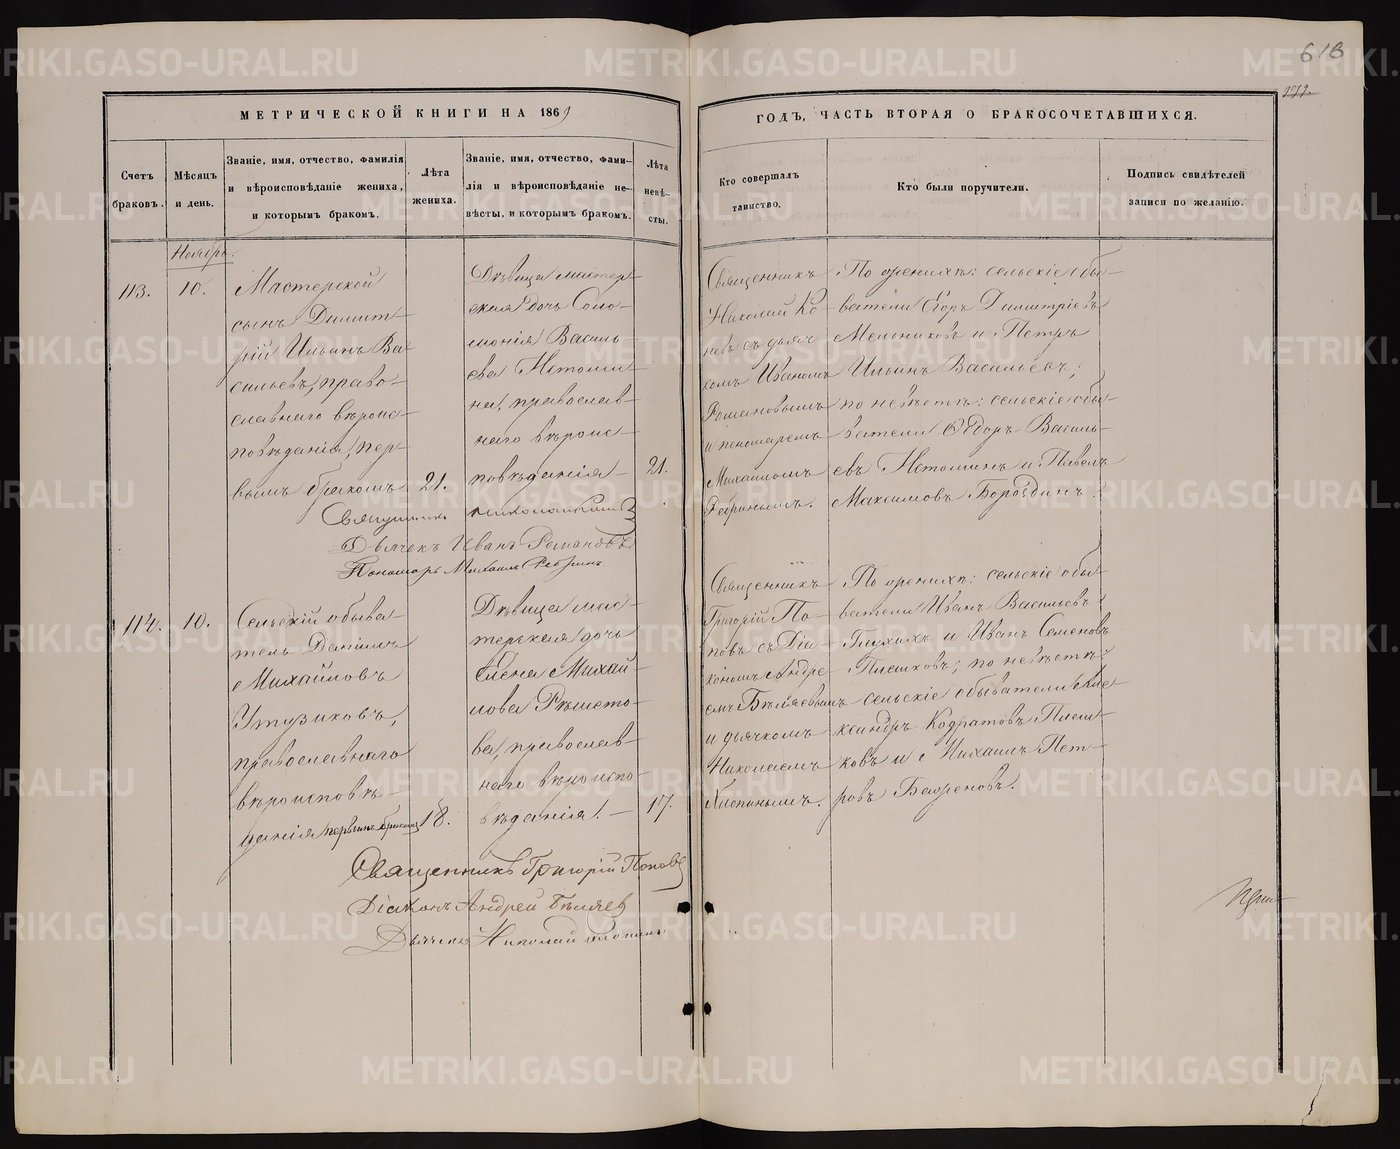 613
МЕТРИЧЕСКОЙ КНИГИ НА 1869
ГОДЪ, ЧАСТЬ ВТОРАЯ О БРАКОСОЧЕТАВШИХСЯ.
Счетъ
браковъ.
Мѣсяцъ
и день.
Званіе, имя, отчество, фамилія
и вѣроисповѣданіе жениха,
и которымъ бракомъ.
Лѣта
жениха.
Званіе, имя, отчество, фами-
лія и вѣроисповѣданіе не-
вѣсты, и которымъ бракомъ.
Лѣта
невѣ-
сты.
Кто совершалъ
таинство.
Кто были поручители.
Подпись свидѣтелей
записи по желанію.
Ноябрь.
113.
10.
Мастерской
сынъ Димит-
рій Ильинъ Ва-
сильевъ, право-
славнаго вѣроис-
повѣданія, пер-
вымъ бракомъ
21.
Дѣвица мастер-
ская дочь Соло-
монія Василь-
ева Истоми-
на, православ-
наго вѣроис-
повѣданія
21.
Священникъ
Николай Ко
невъ съ дьяч
комъ Иваномъ
Романовымъ
и пономаремъ
Михаиломъ
Ребринымъ.
По женихѣ: сельскіе обы-
ватели Егоръ Димитріевъ
Мельниковъ и Петръ
Ильинъ Васильевъ;
по невѣстѣ: сельскіе обы-
ватели Ѳедоръ Василь-
евъ Истоминъ и Павелъ
Максимовъ Бороздинъ.
Священникъ
Дьячекъ Иванъ Романовъ
Пономарь Михаилъ Ребринъ
114.
10.
Сельскій обыва-
тель Даніилъ
Михайловъ
Утузиковъ,
православнаго
вѣроисповѣ-
данія первымъ бракомъ
18.
Дѣвица мас-
терская дочь
Елена Михай-
лова Рѣшето-
ва, православ-
наго вѣроиспо-
вѣданія.
17.
Священникъ
Григорій По-
повъ съ Діа-
кономъ Андре-
емъ Бѣляевымъ
и дьячкомъ
Николаемъ
Хлопинымъ.
По женихѣ: сельскіе обы-
ватели Иванъ Васильевъ
Глухихъ и Иванъ Семеновъ
Плешковъ; по невѣстѣ:
сельскіе обыватели Але-
ксандръ Кодратовъ Плеш-
ковъ и Михаилъ Пет-
ровъ Багреновъ.
Священникъ Григорій Поповъ
Діаконъ Андрей Бѣляев
Дьячекъ Николай Хлопинъ
METRIKI.GASO-URAL.RU